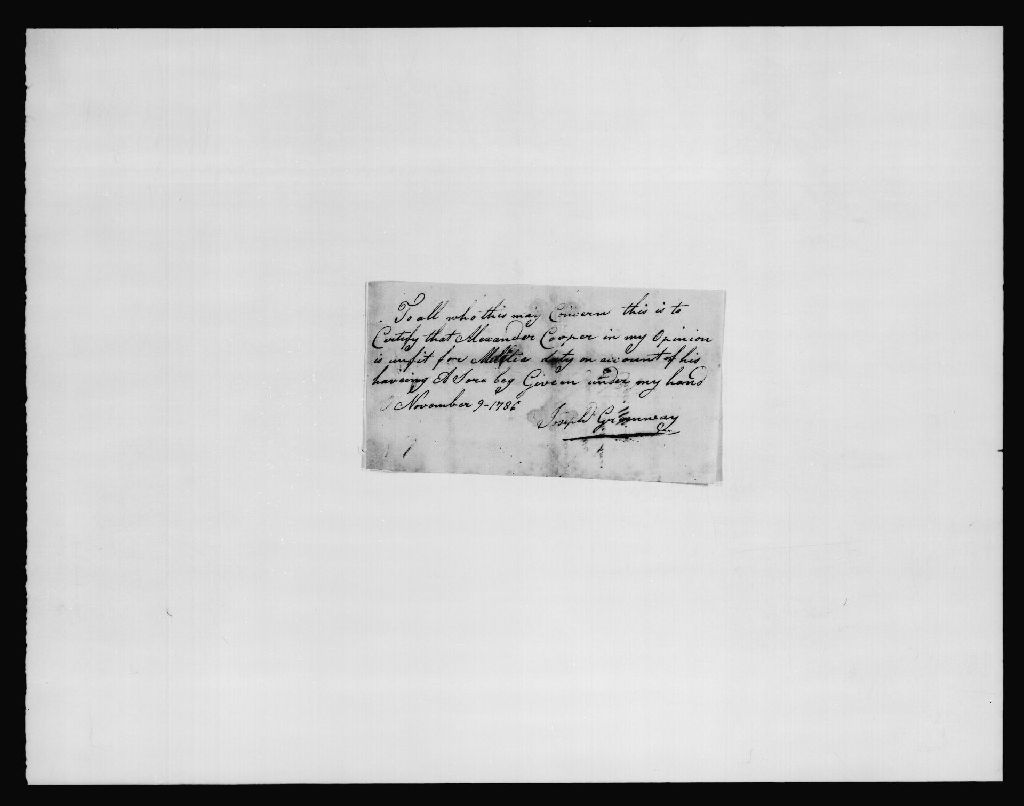 To all who this may Concern this is to
Certify that Alexander Cooper in my Opinion
is unfit for Militia duty on account of his
having A Sore Leg Given under my hand
November 9-1786
Joseph